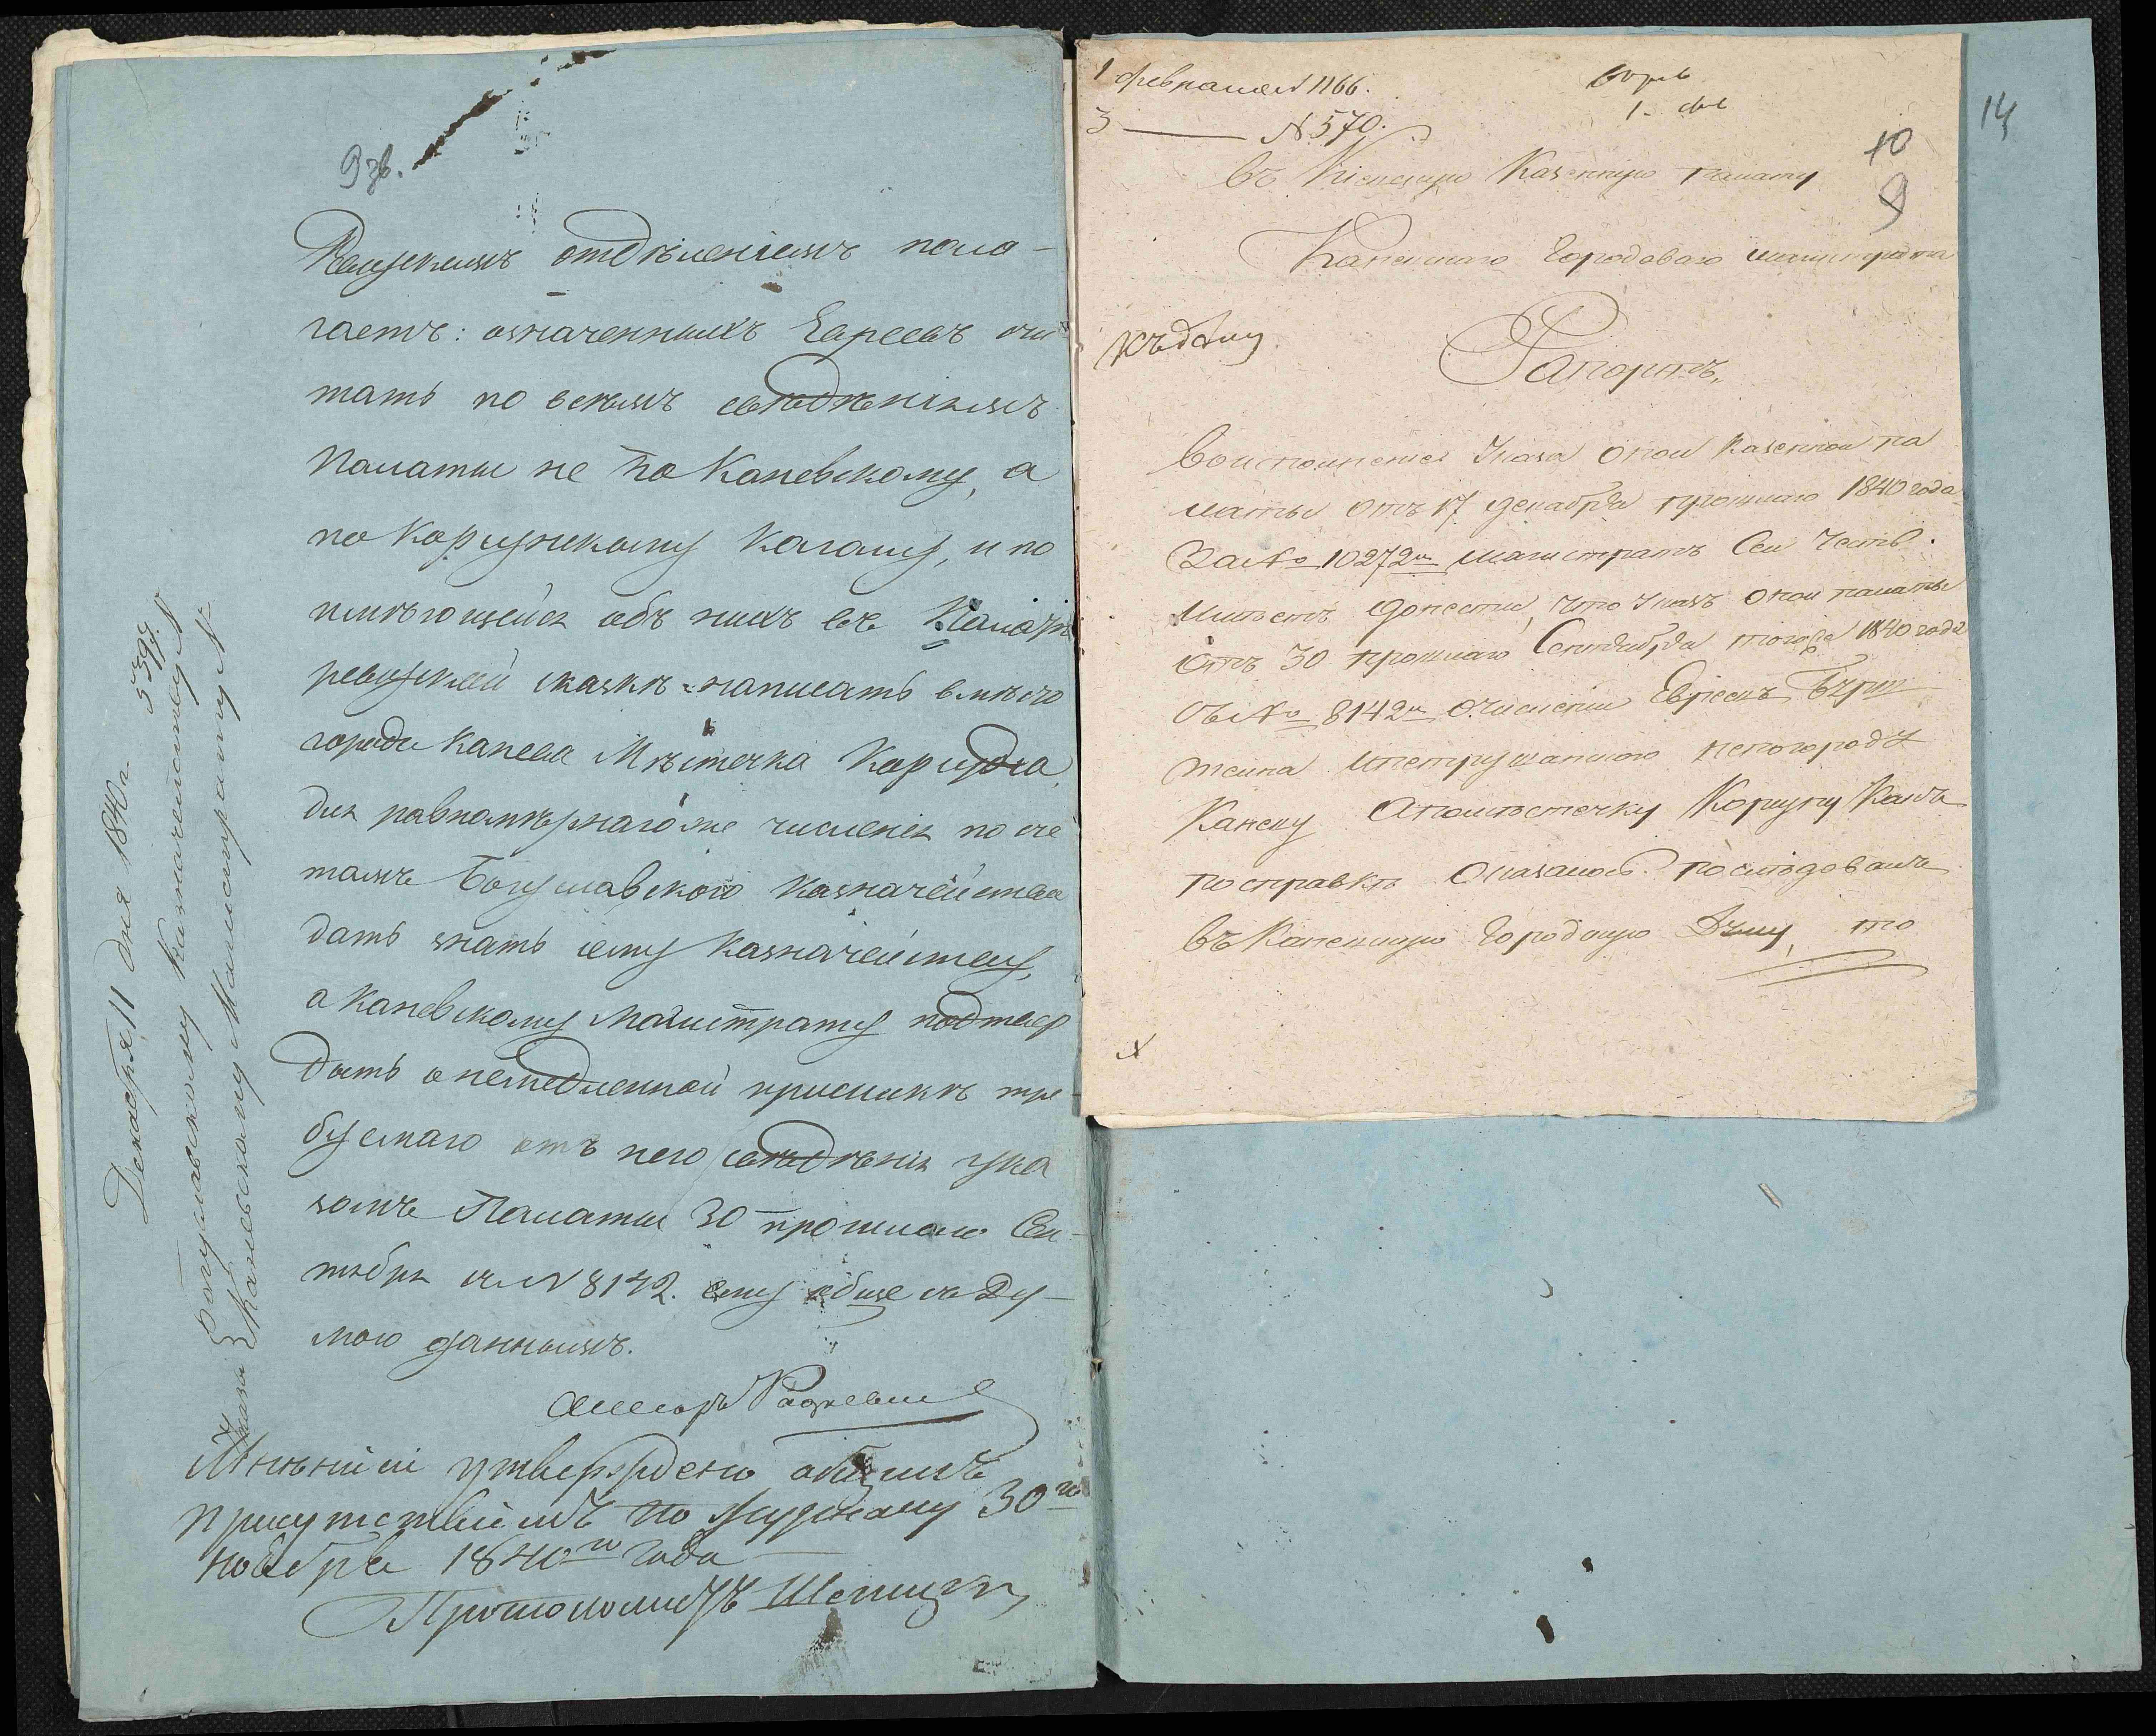 9 зв.
отдѣленіемъ пола-
гаетъ: означенныхъ Евреевъ счи
тать по всемъ свѣдѣніямъ
Палаты не по Каневскому, а
по Корсунскому Кагалу, и по
имѣющейся объ нихъ въ
ревизской сказкѣ написать вмѣсто
города Канева Мѣстечка Корсуна
для равномѣрнагоже численія по сче
тамъ Богуславского Казначейства
дать знать сему Казначейству,
а Каневскому Магистрату подтвер
дить о немедленной присылкѣ тре-
буемаго отъ него свѣдѣнія ука
зомъ Палаты 30 прошлаго Сен-
тября за N 8142. ему обще съ Ду-
мою даннымъ.
Ассесоръ
Мнѣніе утверждено общимъ
присутствіемъ по журналу 30го
ноября 1840го года
Протоколистъ
Декабря 11 дня 1840 г.
Указы
Богуславскому Казначейству N
Каневскому Магистрату N
1 февраля N 1166.
3 — N 570.
14
10
9
Въ Кіевскую Казенную палату
Каневскаго Городоваго магистрата
Рапортъ,
Къ дѣлу
Воисполненіе Указа оной Казенной па
латы отъ 17 декабря прошлаго 1840 года
За № 10272м магистратъ Сей Честь
имѣетъ донести, что Указъ оной палаты
отъ 30 прошлаго Сентября тогоже 1840 года
за № 8142м очисленіи Евреевъ
непогороду
Каневу апомѣстечку Корсуну Какъ
посправкѣ оказалось последовалъ
въ Каневскую Городскую Думу, то